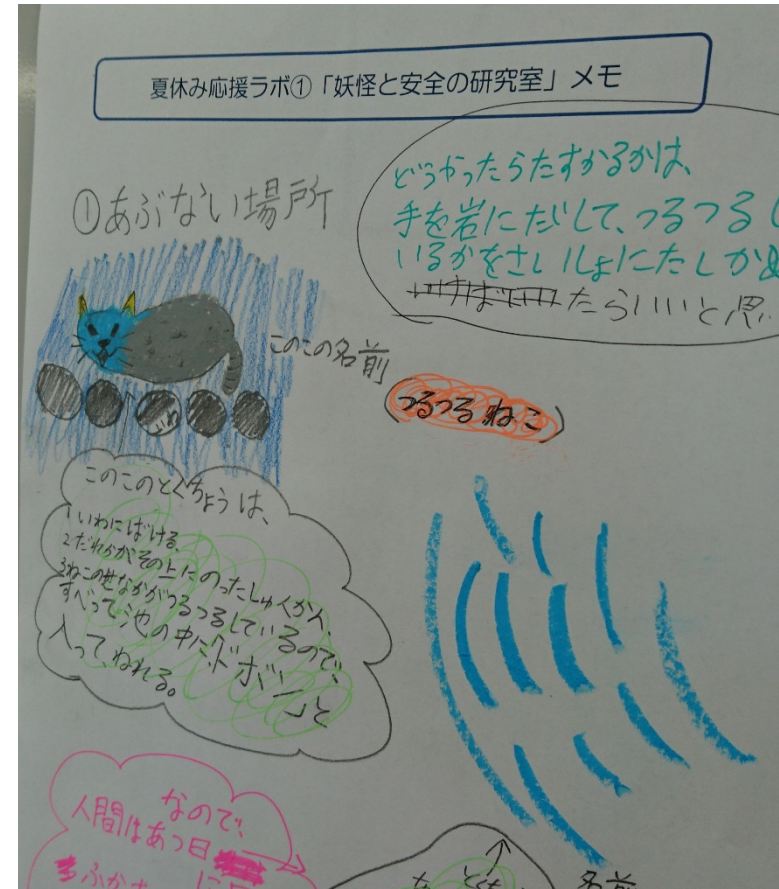 夏休み応援ラボ①「妖怪と安全の研究室」メモ
①あぶない場所
どうやったらたすかるかは、
手を岩にだして、つるつるし
いるかをさいしょにたしかめ
たらいいと思
このこの名前
(つるつるねこ)
いわ
このこのとくちょうは、
1いわにばける。
2だれかがその上にのったしゅんかん
3ねこのせなかがつるつるしているので、
すべって池の中に「ドボン」と
入って、ぬれる。
なので、
人間はあつ日
名前